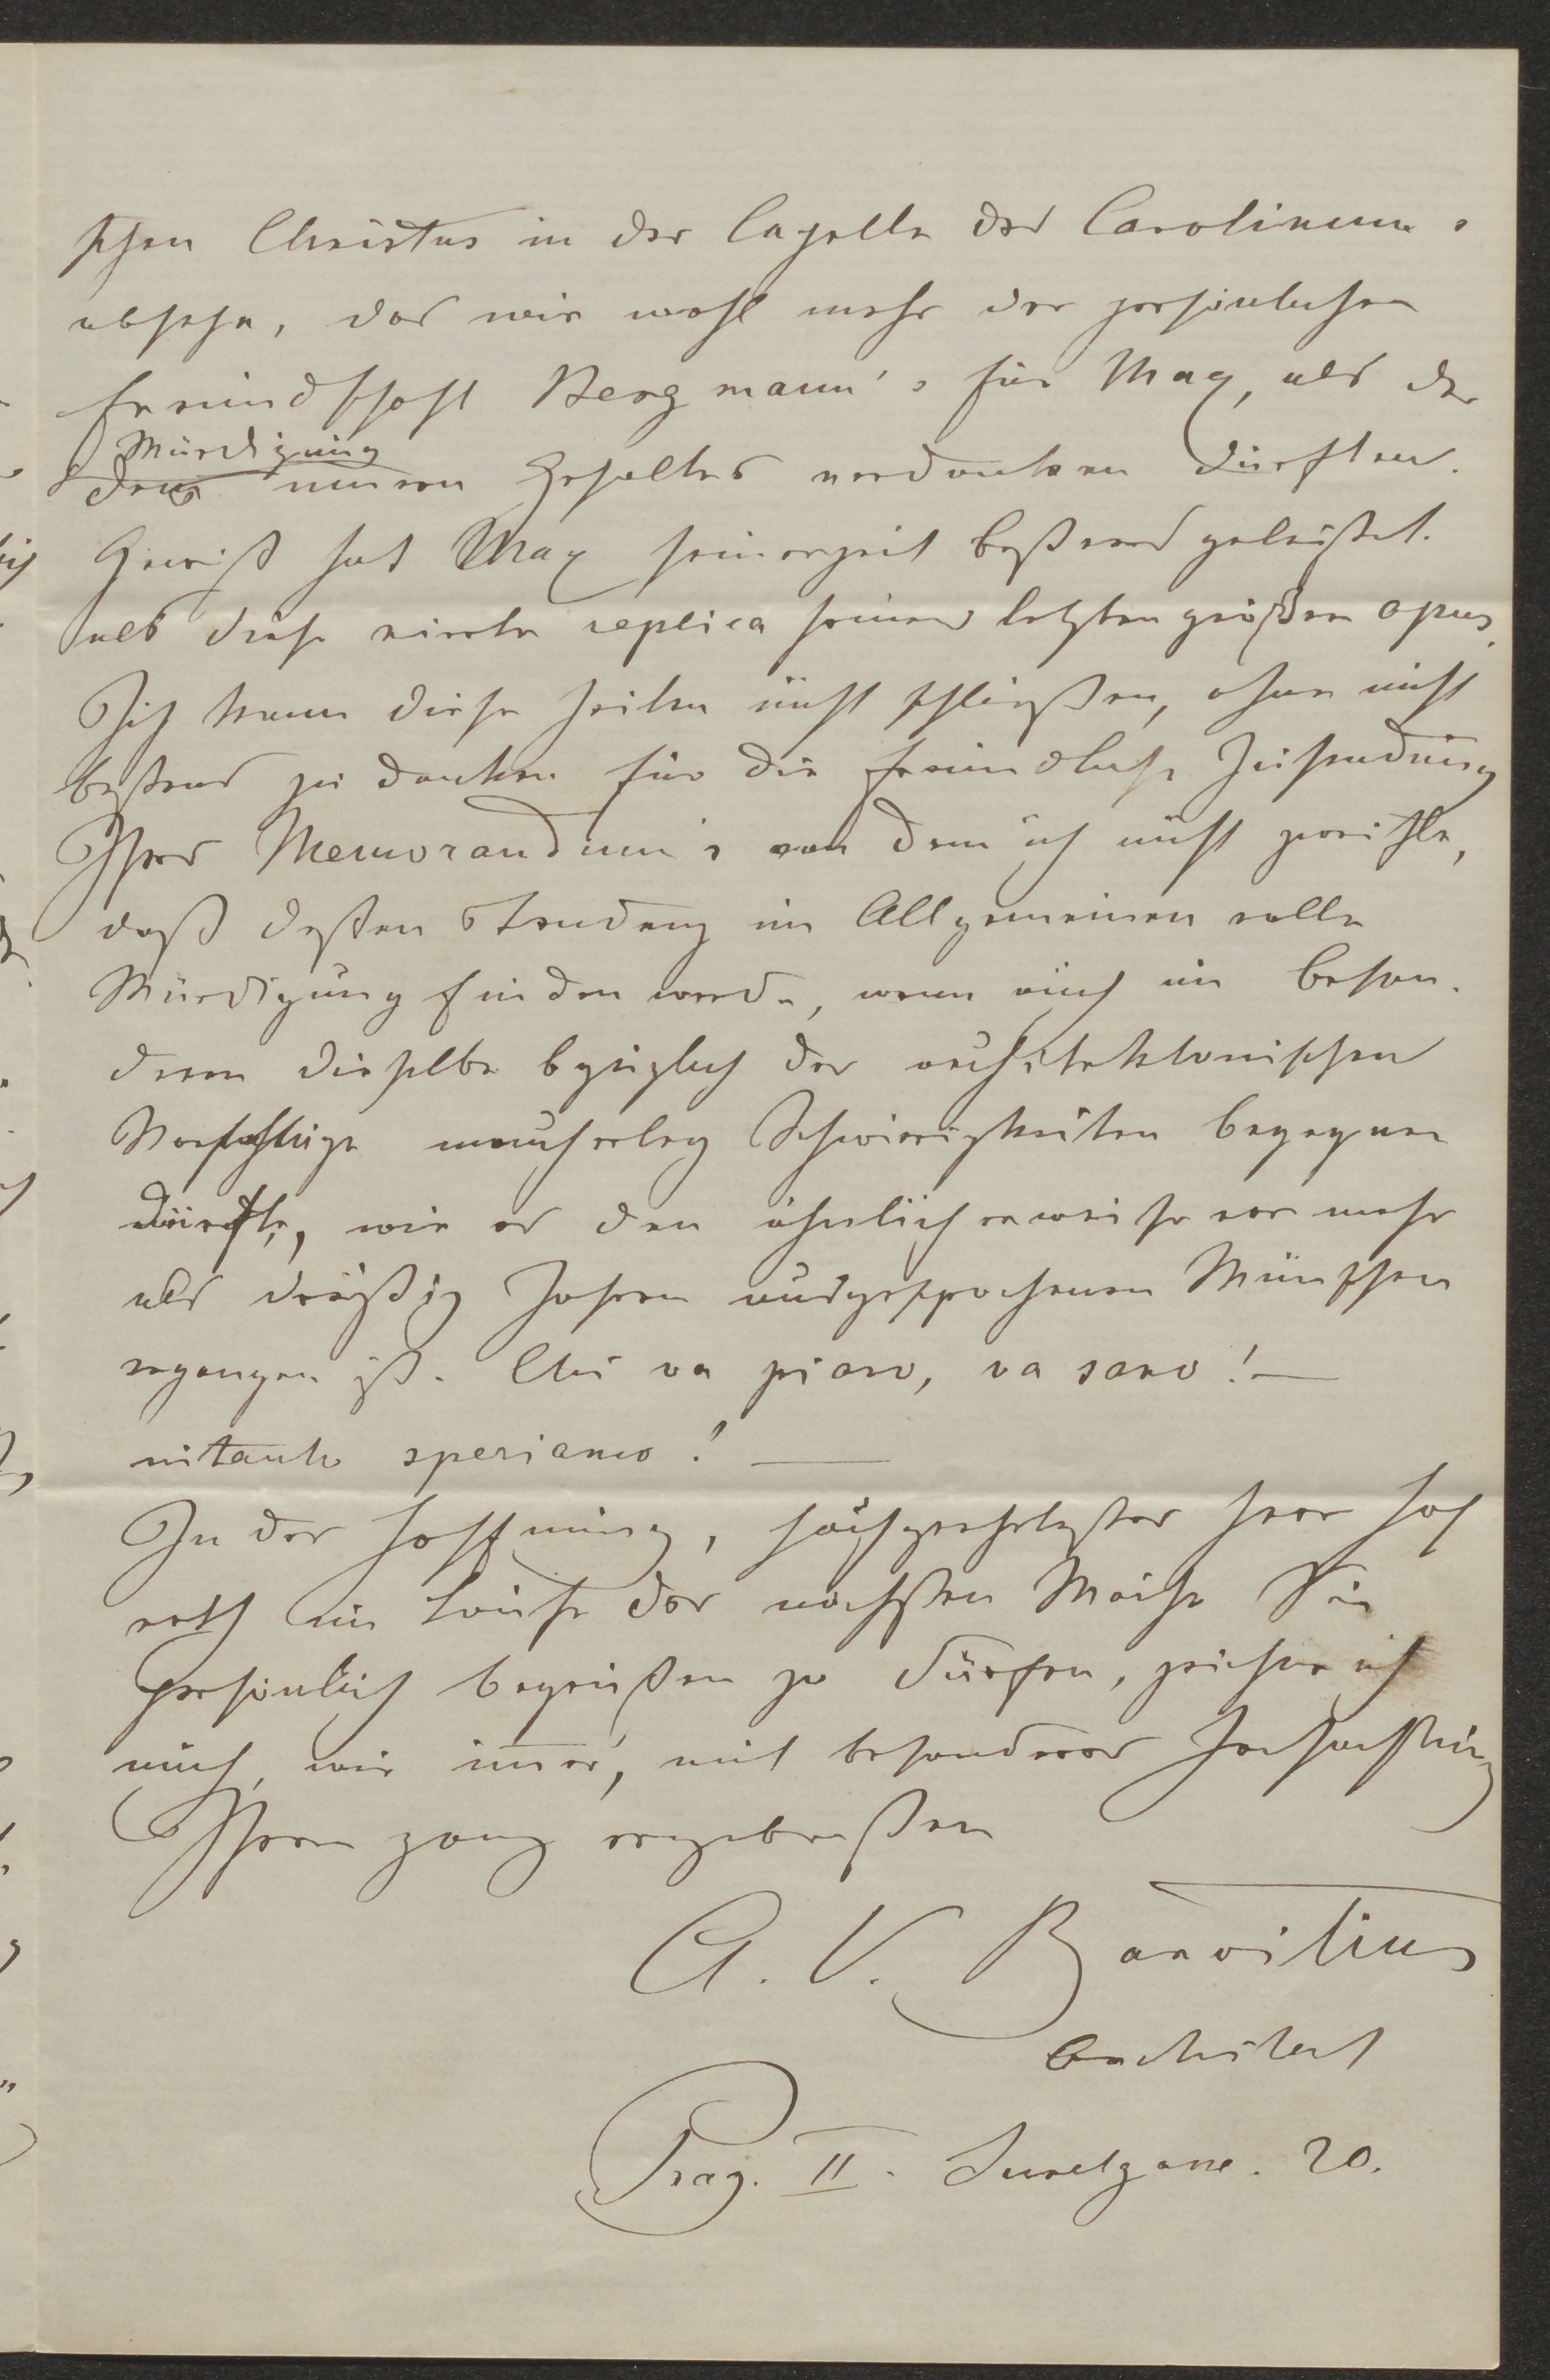 schen Christus in der Capelle des Carolinum's
absehe, das wir wohl mehr der persönlichen
Freundschaft Bergmann's für Max, als der
Würdigung
dem inneren Gehaltes verdanken dürften.
Gewiß hat Max seinerzeit beßeres geleistet.
als diese vierte replica seines letzten größeren opus.
Ich kann diese Zeilen nicht schließen, ohne nicht
bestens zu danken für die freundliche Zusendung
Ihres Memorandum's von dem ich nicht zweifle,
daß deßen Tendenz im Allgemeinen volle
Würdigung finden werde, wenn auch im beson-
deren dieselbe bezüglich der architektonischen
Vorschläge mancherley Schwierigkeiten begegnen
dürfte, wie es den ähnlicherweise vor mehr
als dreißig Jahren ausgesprochenen Wünschen
ergangen ist. Chi va piano, va sano! —
intanto speriamo! —
In der Hoffnung, hochgeehrtester Herr Hof
rath im Laufe der nächsten Woche Sie
persönlich begrüßen zu dürfen, zeichne ich
mich, wie im̅er, mit besonderer Hochachtung
Ihren ganz ergebensten
A. V. Barvitius
Architect
Prag. II. 20.